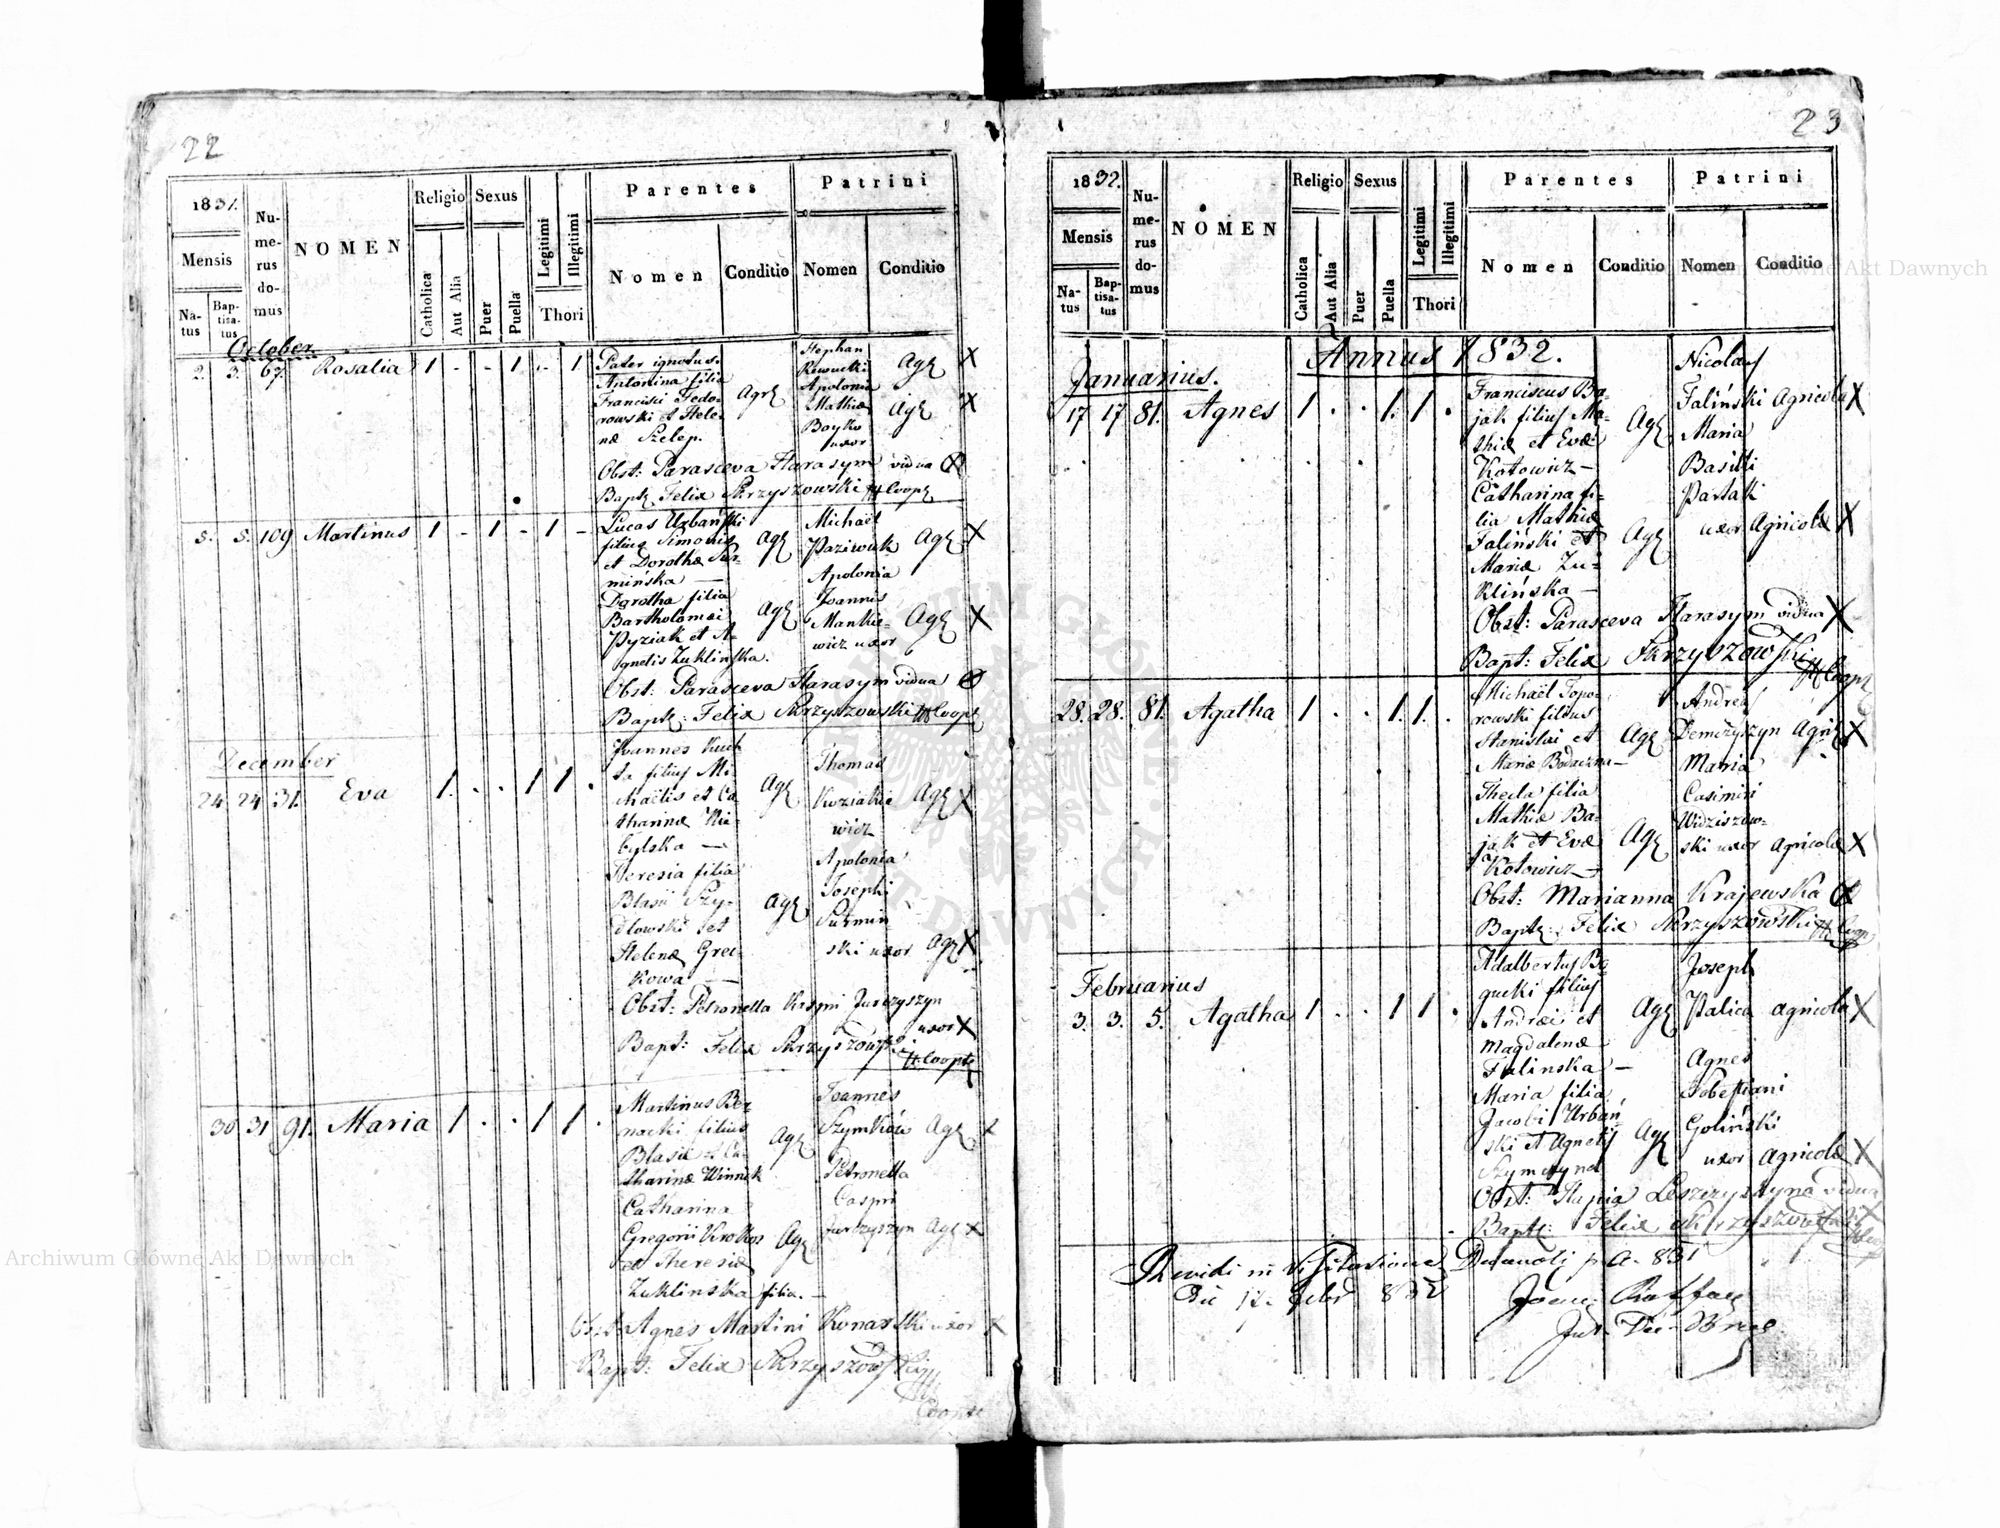 22
1831.
Mensis
Na-
tus
Bap-
tisa-
tus
Nu-
me-
rus
do-
mus
NOMEN
Religio
Catholica
Aut Alia
Sexus
Puer
Puella
Legitimi
Illegitimi
Thori
Parentes
Nomen
Conditio
Patrini
Nomen
Conditio
October
2. 3. 67. Rosalia 1 - - 1 - 1
Pater ignotus.
Antonina filia
Francisci Fedo-
rowski et Hele-
næ Szelep.
Agr
Stephan
Apolonia
Mathiæ
Boyko
uxor
Agr X
Agr X
Obst: Parasceva Harasym vidua X
Bapt: Felix Skrzyszowski Coopt
5. 5. 109 Martinus 1 - 1 - 1 -
Lucas Urbański
filius Simonis
et Dorothæ Sur-
mińska —
Agr
Dorotha filia
Bartholomæi
Pyziak et A-
gnetis Zuklinska.
Agr
Michaël
Paziewuk
Apolonia
Joannis
Mankie-
wicz uxor
Agr X
Agr X
Obst: Parasceva Harasym vidua
Bapt: Felix Skrzyszowski Coopt
December
24 24 31. Eva 1. . . 1 1 .
Joannes Kuch
ta filius Mi-
chaëlis et Ca
tharinæ Kie-
bylska —
Agr
Theresia filia
Blasii Szy-
dlowski et
Helenæ Gree-
kowa —
Agr
Thomas
Kuziakie
wicz
Apolonia
Josephi
Surmin
ski uxor
Agr X
Agr X
Obst: Petronella Kaspri Jurczyszyn
uxor X
Bapt: Felix Skrzyszowski
Coopt
30 31 91. Maria 1 . . 1 1 .
Martinus Ber-
nacki filius
Blasii et Ca-
tharinæ Winnik
Agr
Catharina
Gregorii Krokos
et Theresiæ
Zuklinska filia. —
Agr
Joannes
Szymków
Petronella
Caspri
Jurczyszyn
Agr X
Agr X
Obst: Agnes Martini Konarski uxor X
Bapt: Felix Skrzyszowski
Coopt
23
1832.
Mensis
Na-
tus
Bap-
tisa-
tus
Nu-
me-
rus
do-
mus
NOMEN
Religio
Catholica
Aut Alia
Sexus
Puer
Puella
Legitimi
Illegitimi
Thori
Parentes
Nomen
Conditio
Patrini
Nomen
Conditio
Annus 1832.
Januarius.
17 17 81. Agnes 1 . . 1. 1 .
Franciscus Ba-
jak filius Ma-
thiæ et Evæ
Kotowicz —
Agr
Catharina fi-
lia Mathiæ
Faliński et
Mariæ Zu-
klińska —
Agr
Nicolaus
Faliński Agricola X
Maria
Basilii
Partak
uxor Agricolæ X
Obst: Parasceva Harasym vidua X
Bapt: Felix Skrzyszowski
Coopt
28. 28. 81. Agatha 1 . . 1. 1. .
Michaël Topo-
rowski filius
Stanislai et
Mariæ Bodaczna —
Agr
Thecla filia
Mathiæ Ba-
jak et Evæ
Kotowicz —
Agr
Andreas
Demczyszyn Agric X
Maria
Casimiri
Widziszow-
ski uxor Agricolæ X
Obst: Marianna Krajewska X
Bapt: Felix Skrzyszowski Coopt
Februarius
3. 3. 5. Agatha 1 . . 1 1 .
Adalbertus Bo-
gucki filius
Andræi et
Magdalenæ
Falinska —
Agr
Maria filia
Jacobi Urbań-
ski et Agnetis
Szymczyna
Agr
Joseph
Palica agricola X
Agnes
Sobestiani
Goliński
uxor Agricolæ X
Obst: Leszczyszyna vidua X
Bapt: Felix Skrzyszowski
Revidi in Visitatione Decanali p. a. 831
Die 17. Febr 832
Archiwum Główne Akt Dawnych
Archiwum Główne Akt Dawnych
ARCHIWUM GŁÓWNE AKT DAWNYCH